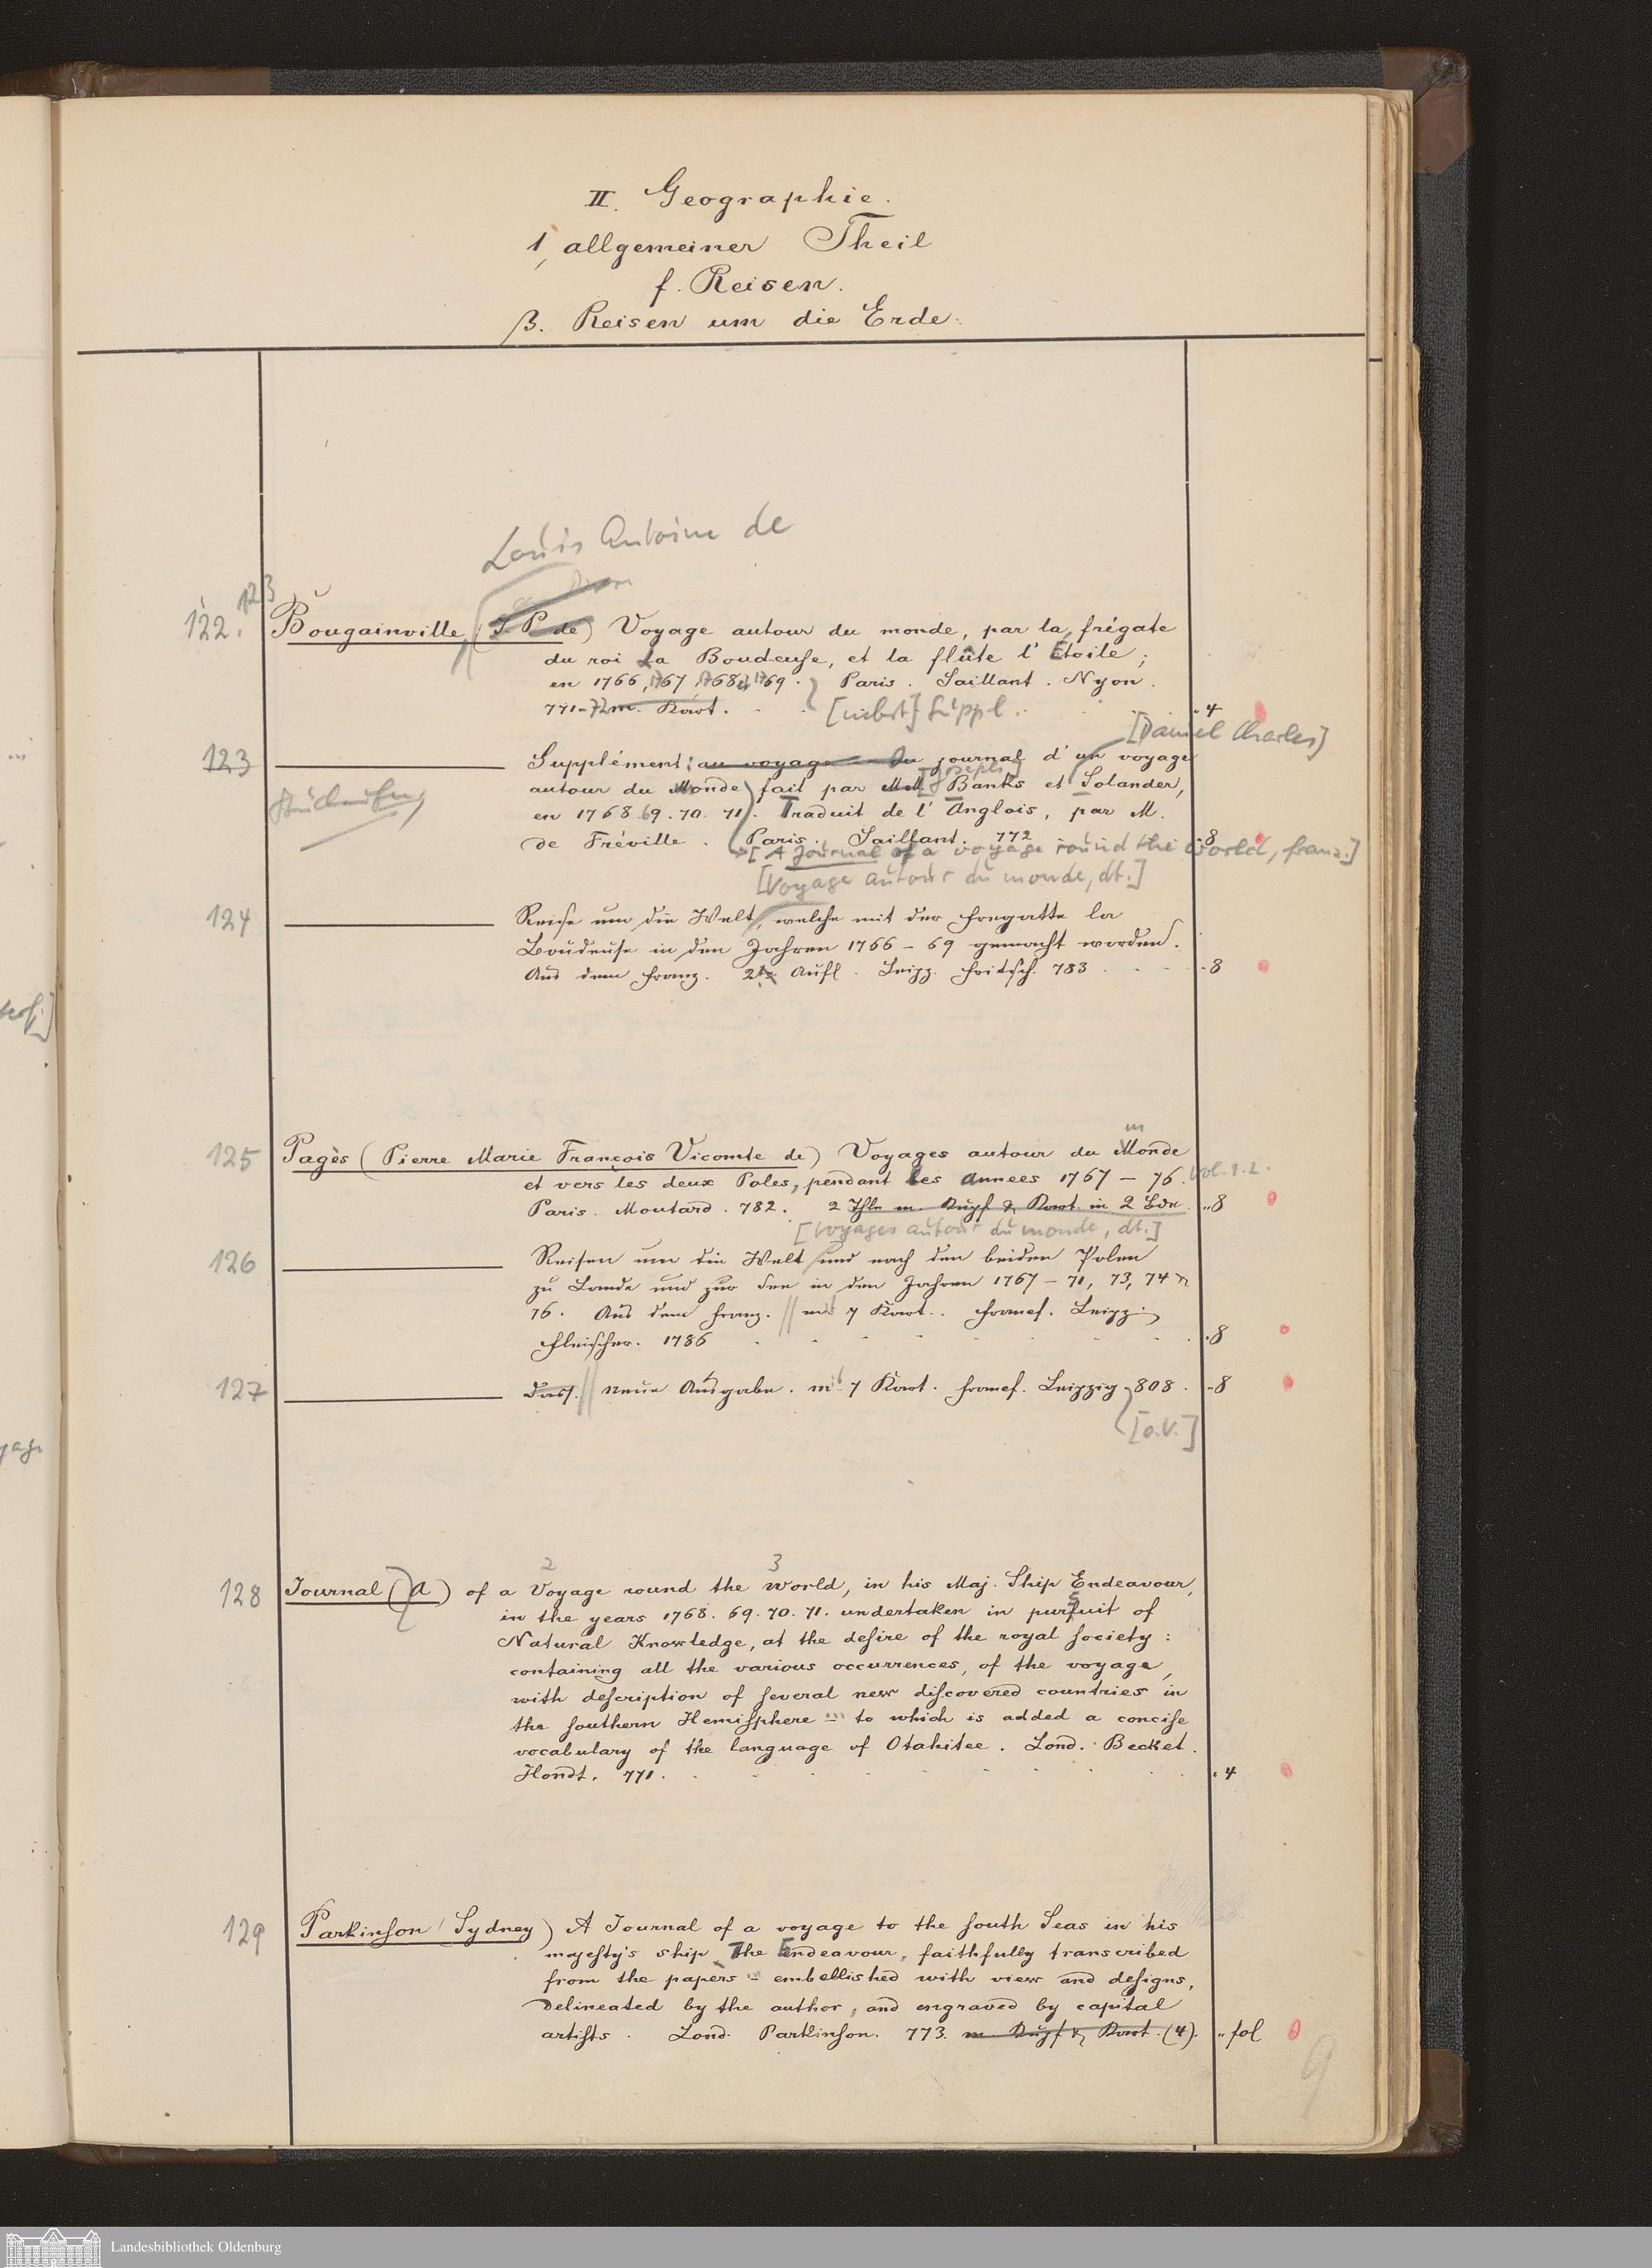 II. Geographie.
1, allgemeiner Theil
f. Reisen.
β. Reisen um die Erde.
Louis Antoine de
123
122. Bougainville (J. P. de) Voyage autour du monde, par la frégate
du roi La Boudeuse, et la flûte l'Étoile;
en 1766, 1767, 1768 et 1769. Paris. Saillant. Nyon.
771-72 m. Kart. [nebst] Suppl. 4
[Daniel Charles]
123 Supplément: au voyage - Du journal d'un voyage
[Joseph]
autour du Monde fait par MM. Banks et Solander,
en 1768. 69. 70. 71. Traduit de l'Anglois, par M.
de Fréville. Paris. Saillant. 772 8
[A Journal of a voyage round the world, franz.]
[Voyage autour du monde, dt.]
124 Reise um die Welt, welche mit der Fregatte la
Boudeuse in den Jahren 1766-69 gemacht worden.
Aus dem Franz. 2te Aufl. Leipz. Fritsch. 783 8
m
125 Pagès (Pierre Marie François Vicomte de) Voyages autour du Monde
et vers les deux Poles, pendant les Annees 1767-76. Vol. 1.2.
Paris. Moutard. 782. 2 Thle m. Kupf & Kart. in 2 Bdn. 8
[Voyages autour du monde, dt.]
126 Reisen um die Welt und nach den beiden Polen
zu Lande und zur See in den Jahren 1767-71, 73, 74 &
76. Aus dem Franz. mit 7 Kart. Francf. Leipz.
Fleischer. 1786 8
127 Dass. neue Ausgabe. mit 7 Kart. Francf. Leipzig 808. 8
[o.V.]
2 3
128 Journal (A) of a Voyage round the World, in his Maj. Ship Endeavour,
in the years 1768. 69. 70. 71. undertaken in pursuit of
Natural Knowledge, at the desire of the royal society:
containing all the various occurrences, of the voyage,
with description of several new discovered countries in
the southern Hemisphere ... to which is added a concise
vocabulary of the language of Otahitee. Lond. Becket.
Hondt. 771. 4
129 Parkinson (Sydney) A Journal of a voyage to the south Seas in his
majesty's ship The Endeavour, faithfully transcribed
from the papers ... embellished with view and designs,
Delineated by the author, and engraved by capital
artists. Lond. Parkinson. 773. m Kupf & Kart. (4). fol
9
Landesbibliothek Oldenburg